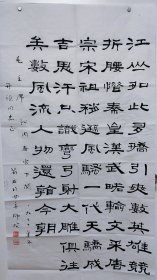 江山如此多嬌引無數英雄競
折腰惜秦皇漢武略輸文采唐
宗宋祖稍遜風騷一代天驕成
吉思汗只識彎弓射大雕俱往
矣數風流人物還看今朝
毛主席